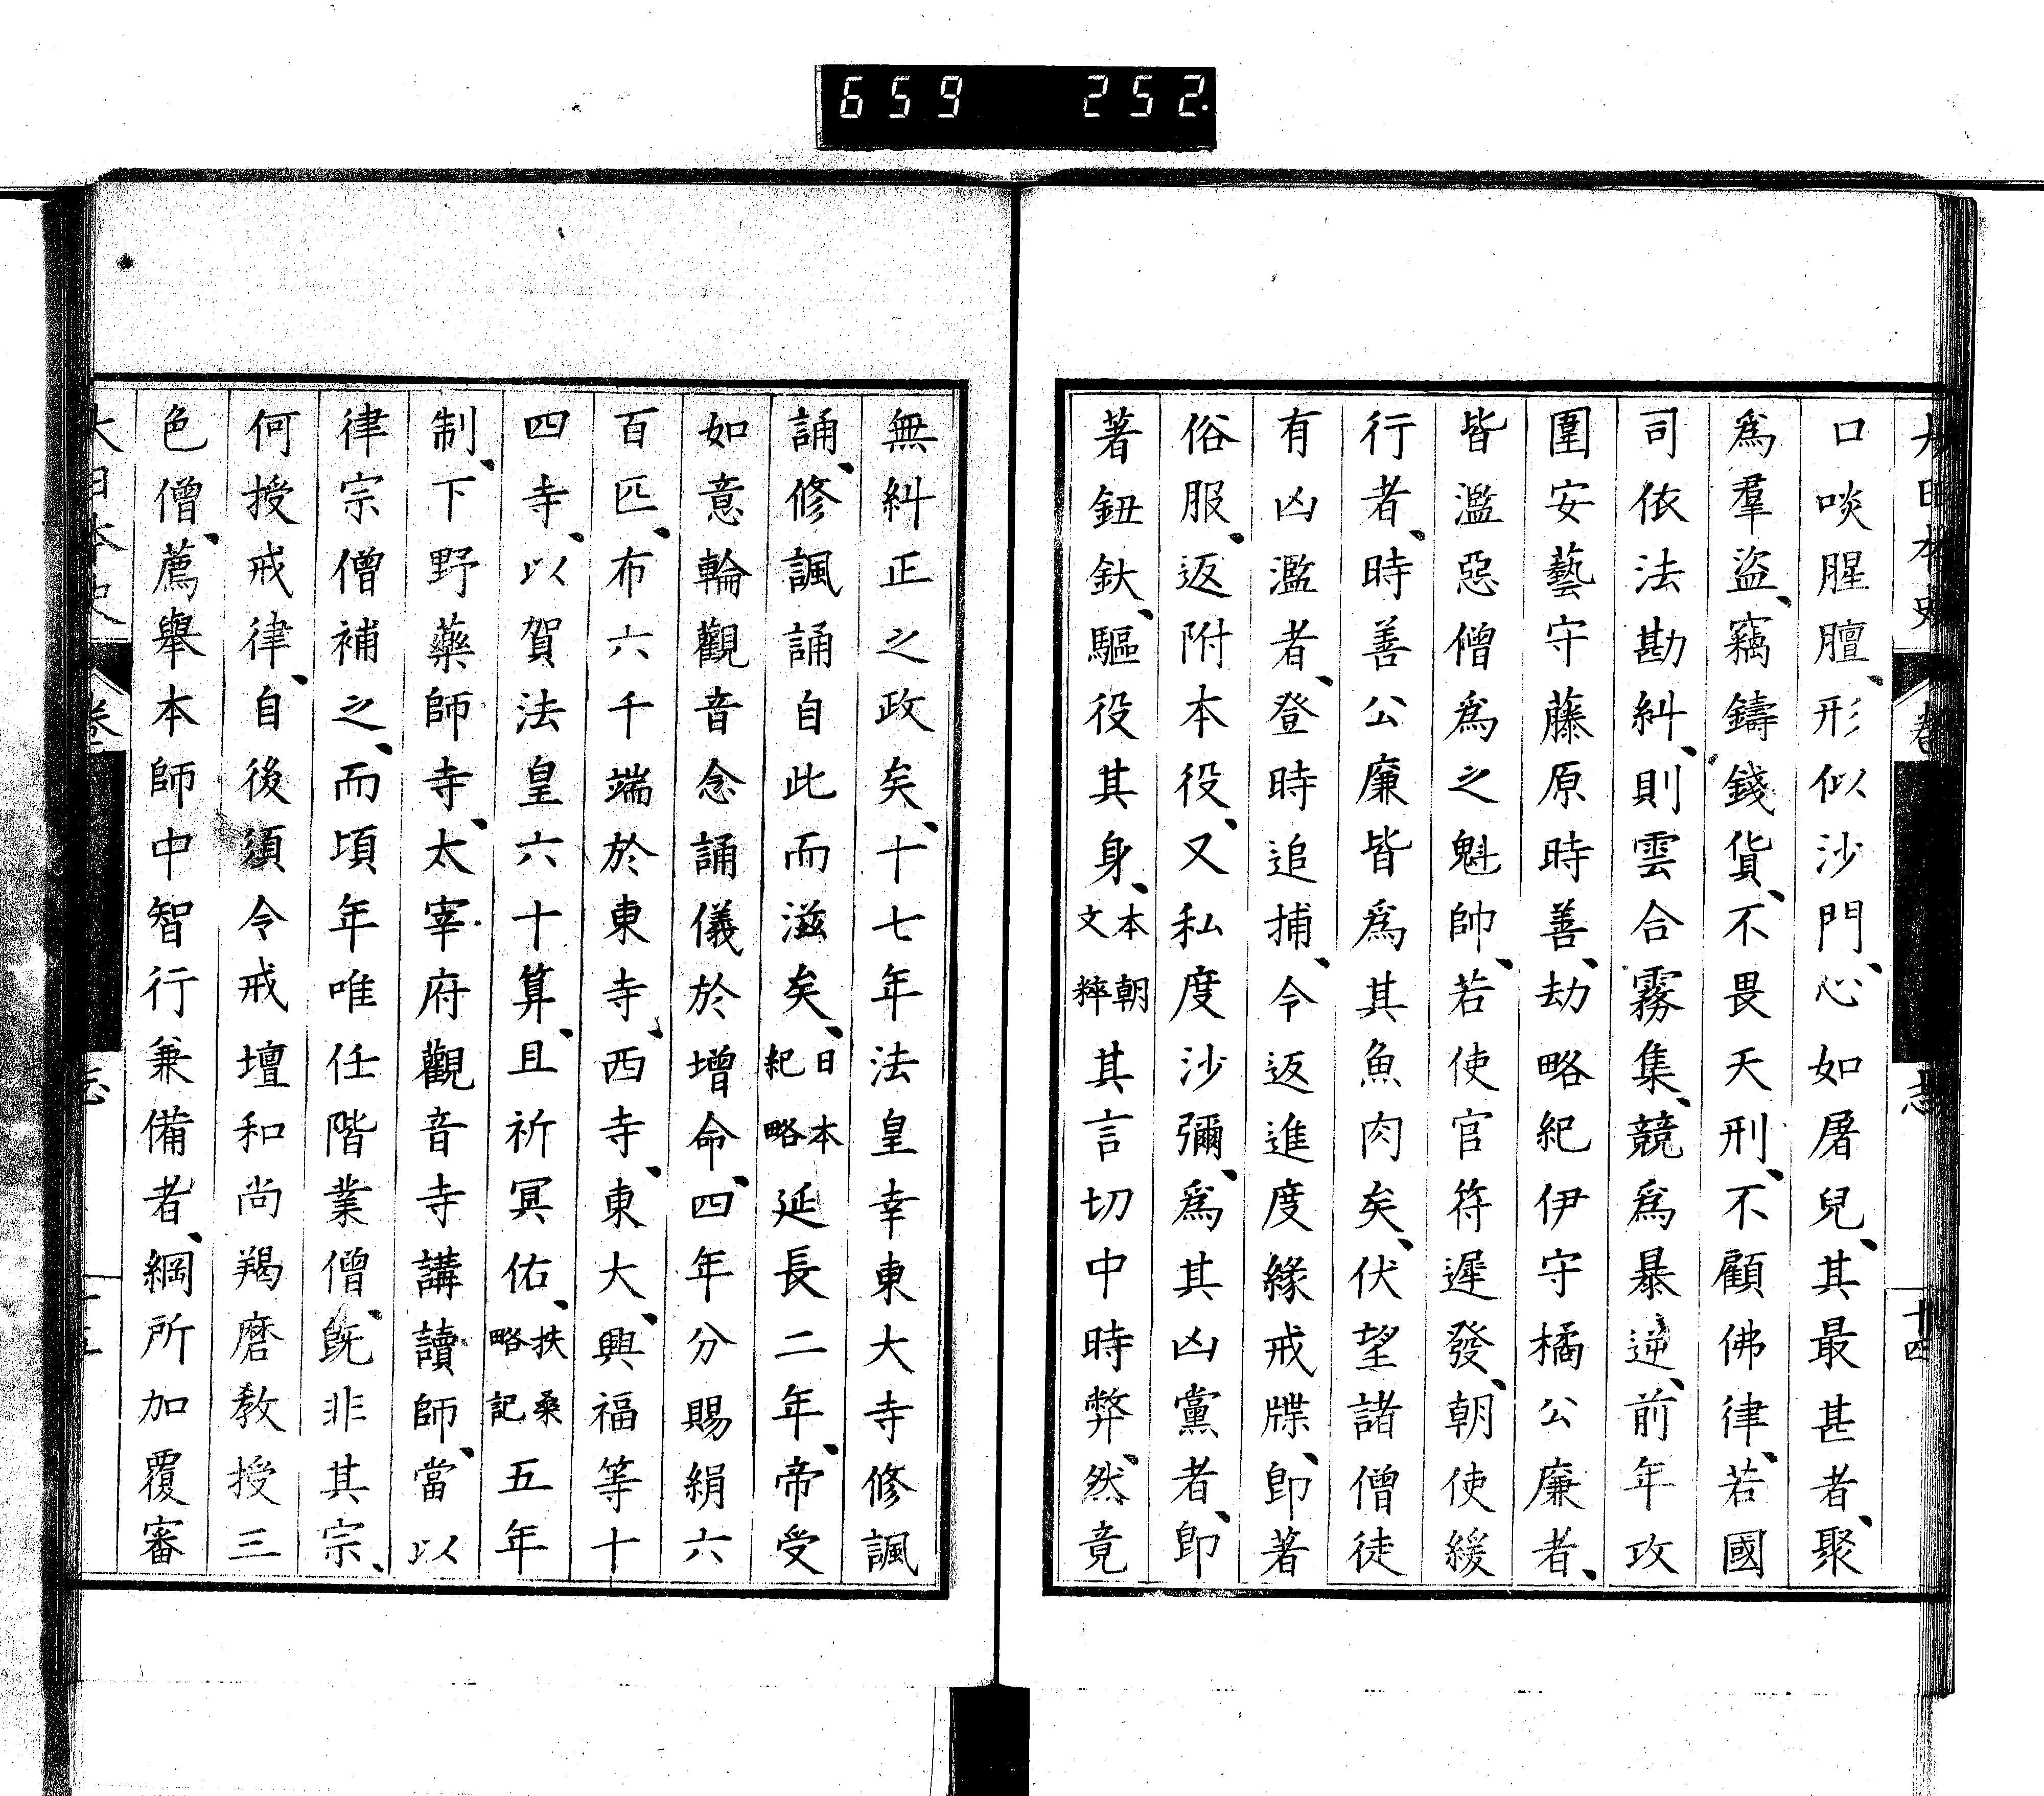 659 252.
大日本史 卷 志 十四
口啖腥膻、形似沙門、心如屠兒、其最甚者、聚
爲羣盜、竊鑄錢貨、不畏天刑、不顧佛律、若國
司依法勘糾、則雲合霧集、競爲暴逆、前年攻
圍安藝守藤原時善、劫略紀伊守橘公廉者、
皆濫惡僧爲之魁帥、若使官符遲發、朝使緩
行者、時善公廉皆爲其魚肉矣、伏望諸僧徒
有凶濫者、登時追捕、令返進度緣戒牒、卽著
俗服、返附本役、又私度沙彌、爲其凶黨者、卽
著鈕釱、驅役其身、本朝文粹其言切中時弊、然竟
無糾正之政矣、十七年法皇幸東大寺修諷
誦、修諷誦自此而滋矣、日本紀略延長二年、帝受
如意輪觀音念誦儀於增命、四年分賜絹六
百匹、布六千端於東寺、西寺、東大、興福等十
四寺、以賀法皇六十算、且祈冥佑、扶桑略記五年
制、下野藥師寺、太宰府觀音寺講讀師、當以
律宗僧補之、而頃年唯任階業僧、旣非其宗、
何授戒律、自後須令戒壇和尚羯磨教授三
色僧、薦舉本師中智行兼備者、綱所加覆審
大日本史 卷 志 十五